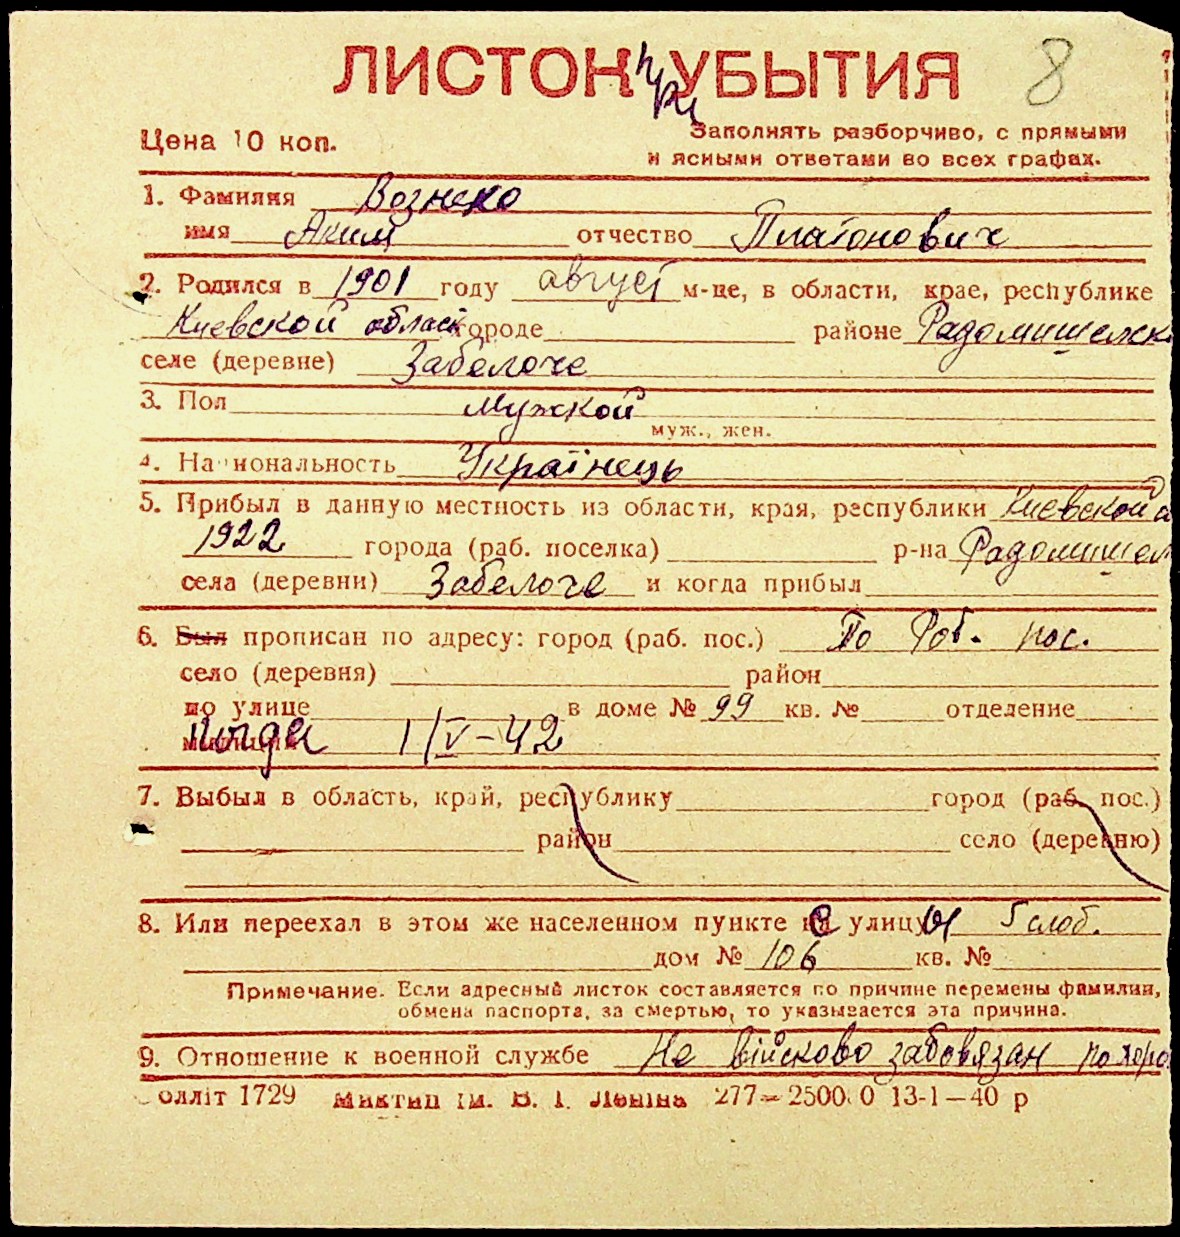 ЛИСТОК при УБЫТИЯ 8
Цена 10 коп.
Заполнять разборчиво, с прямыми
и ясными ответами во всех графах.
1. Фамилия Вознеко
имя Аким отчество Платонович
2. Родился в 1901 году август м-це, в области, крае, республике
Киевской област городе районе Радомишелск
селе (деревне) Забелоче
3. Пол Мужской
муж., жен.
4. Национальность Українець
5. Прибыл в данную местность из области, края, республики Киевской о
1922 города (раб. поселка) р-на Радомишел
села (деревни) Забелоче и когда прибыл
6. Был прописан по адресу: город (раб. пос.) По Роб. пос.
село (деревня) район
по улице в доме № 99 кв. № отделение
милиции 1/V-42
7. Выбыл в область, край, республику город (раб. пос.)
район село (деревню)
8. Или переехал в этом же населенном пункте с улицы 5 слоб.
дом № 106 кв. №
Примечание. Если адресный листок составляется по причине перемены фамилии,
обмена паспорта, за смертью, то указывается эта причина.
9. Отношение к военной службе Не військово забовязан по хоро
олліт 1729 ім. В. І. Леніна 277—2500 0 13-1—40 р